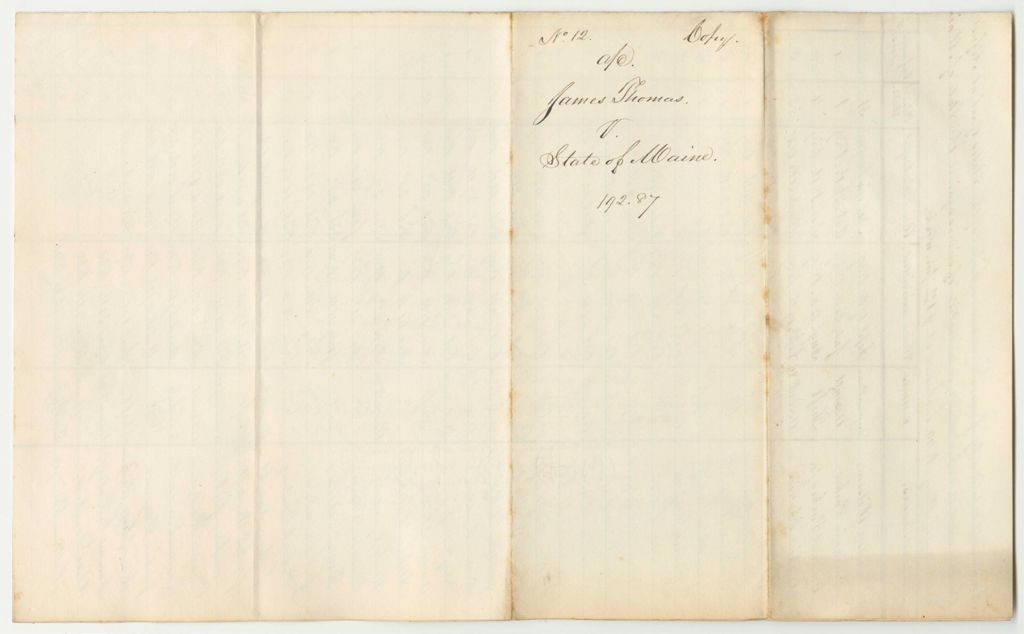 No 12. Copy.
a/c.
James Thomas.
V.
State of Maine.
192.87